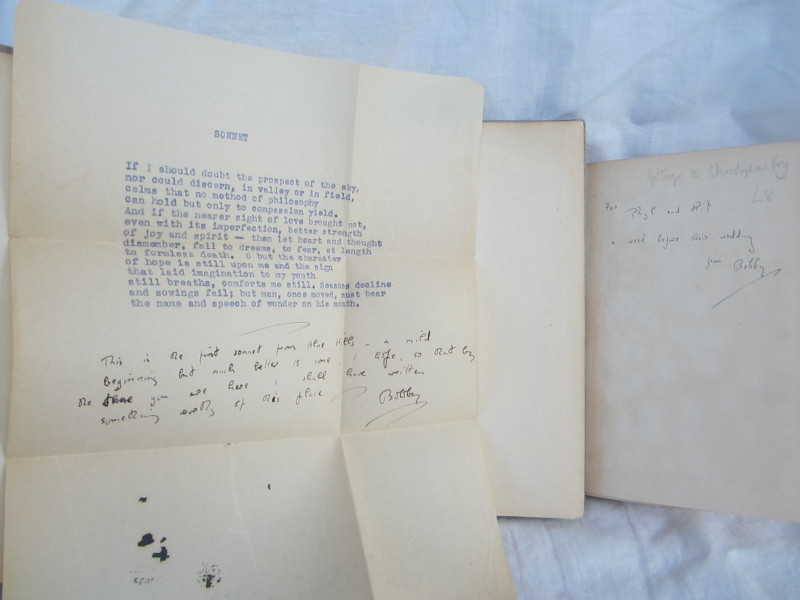 SONNET
If I should doubt the prospect of the sky,
nor could discern, in valley or in field,
calms that no method of philosophy
can hold but only to compassion yield.
And if the nearer sight of love brought not,
even with its imperfection, better strength
of joy and spirit — then let heart and thought
dismember, fall to dreams, to fear, at length
to formless death. O but the character
of hope is still upon me and the sign
that laid imagination to my youth
still breathes, comforts me still. Seasons decline
and sowings fail; but man, once moved, must bear
the name and speech of wonder on his mouth.
This is the first sonnet from Hills - a mild
beginning but much better is , I hope, so that by
the time you are here I shall have written
something worthy of this place
Bobby
to Christopher Fry
£8
For and
a week before their wedding
from Bobby